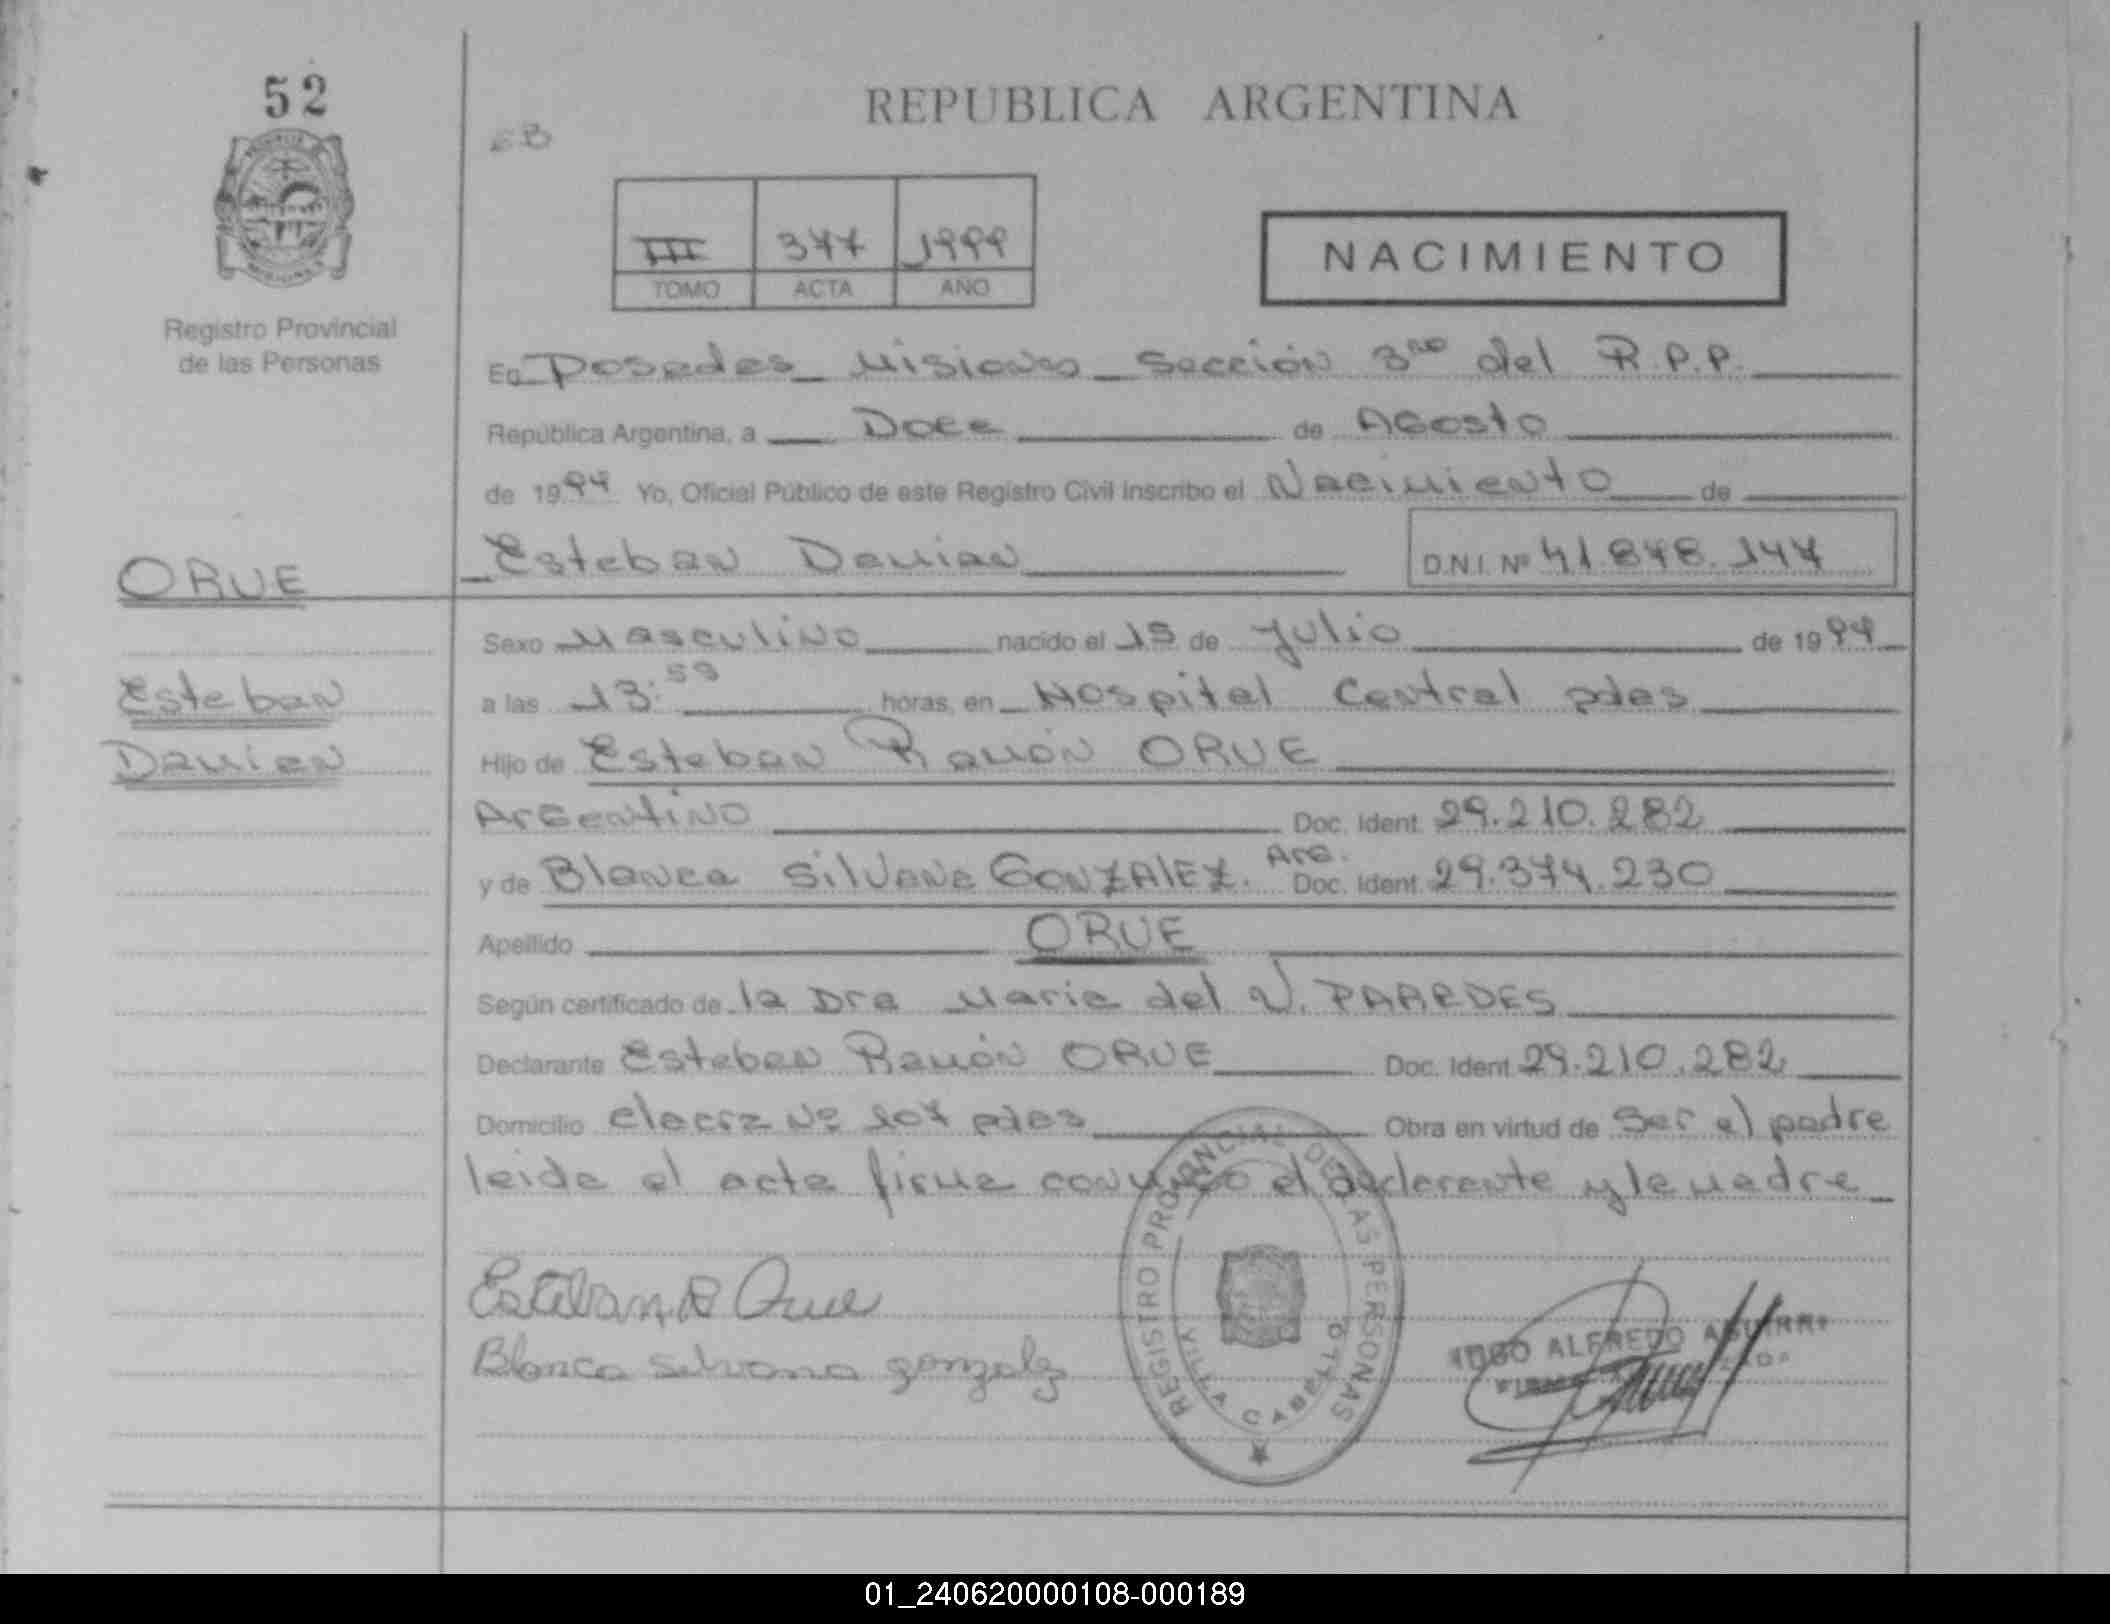 52
REPUBLICA ARGENTINA
EB
III 377 1999
TOMO ACTA AÑO
NACIMIENTO
Registro Provincial
de las Personas
En Posadas Misiones Sección 3ra del R.P.P.
República Argentina, a Doce de Agosto
de 1999 Yo, Oficial Público de este Registro Civil inscribo el Nacimiento de
Esteban Damian D.N.I. Nº 41.878.147
ORUE
Sexo Masculino nacido el 15 de Julio de 1999
Esteban
a las 13:55 horas, en Hospital Central pdas
Damian
Hijo de Esteban Ramón ORUE
Argentino Doc. Ident. 29.210.282
y de Blanca Silvana GONZALEZ. Arg. Doc. Ident. 29.374.230
Apellido ORUE
Según certificado de la Dra Maria del V. PAREDES
Declarante Esteban Ramón ORUE Doc. Ident. 29.210.282
Domicilio Nº 107 pdas Obra en virtud de ser el padre
leida el acta firma conmigo el declarante y la madre
Esteban R Orue
Blanca Silvana gonzalez
REGISTRO PROVINCIAL DE LAS PERSONAS
VILLA CABELLO
HUGO ALFREDO AGUIRRE
01_240620000108-000189